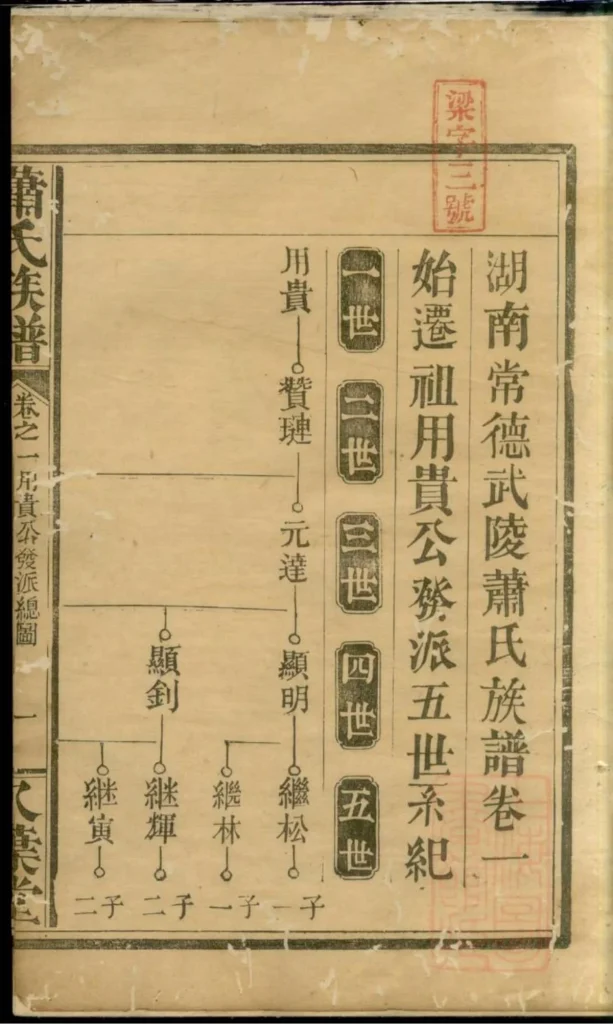 梁字三號
湖南常德武陵蕭氏族譜卷一
始遷祖用貴公發派五世系紀
一世
二世
三世
四世
五世
用貴
贊璉
元達
顯明
繼松
子一
繼林
子一
顯釗
継輝
子二
継寅
子二
蕭氏族譜
卷之一用貴公發派總圖
一
八葉堂